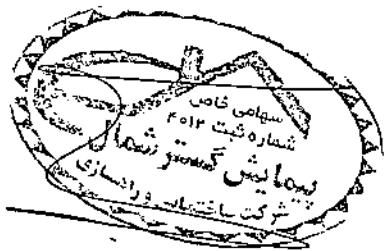 سهامی خاص
شماره ثبت ۴۰۱۲
پیمایش گستر شمال
شرکت ساختمانی و راهسازی